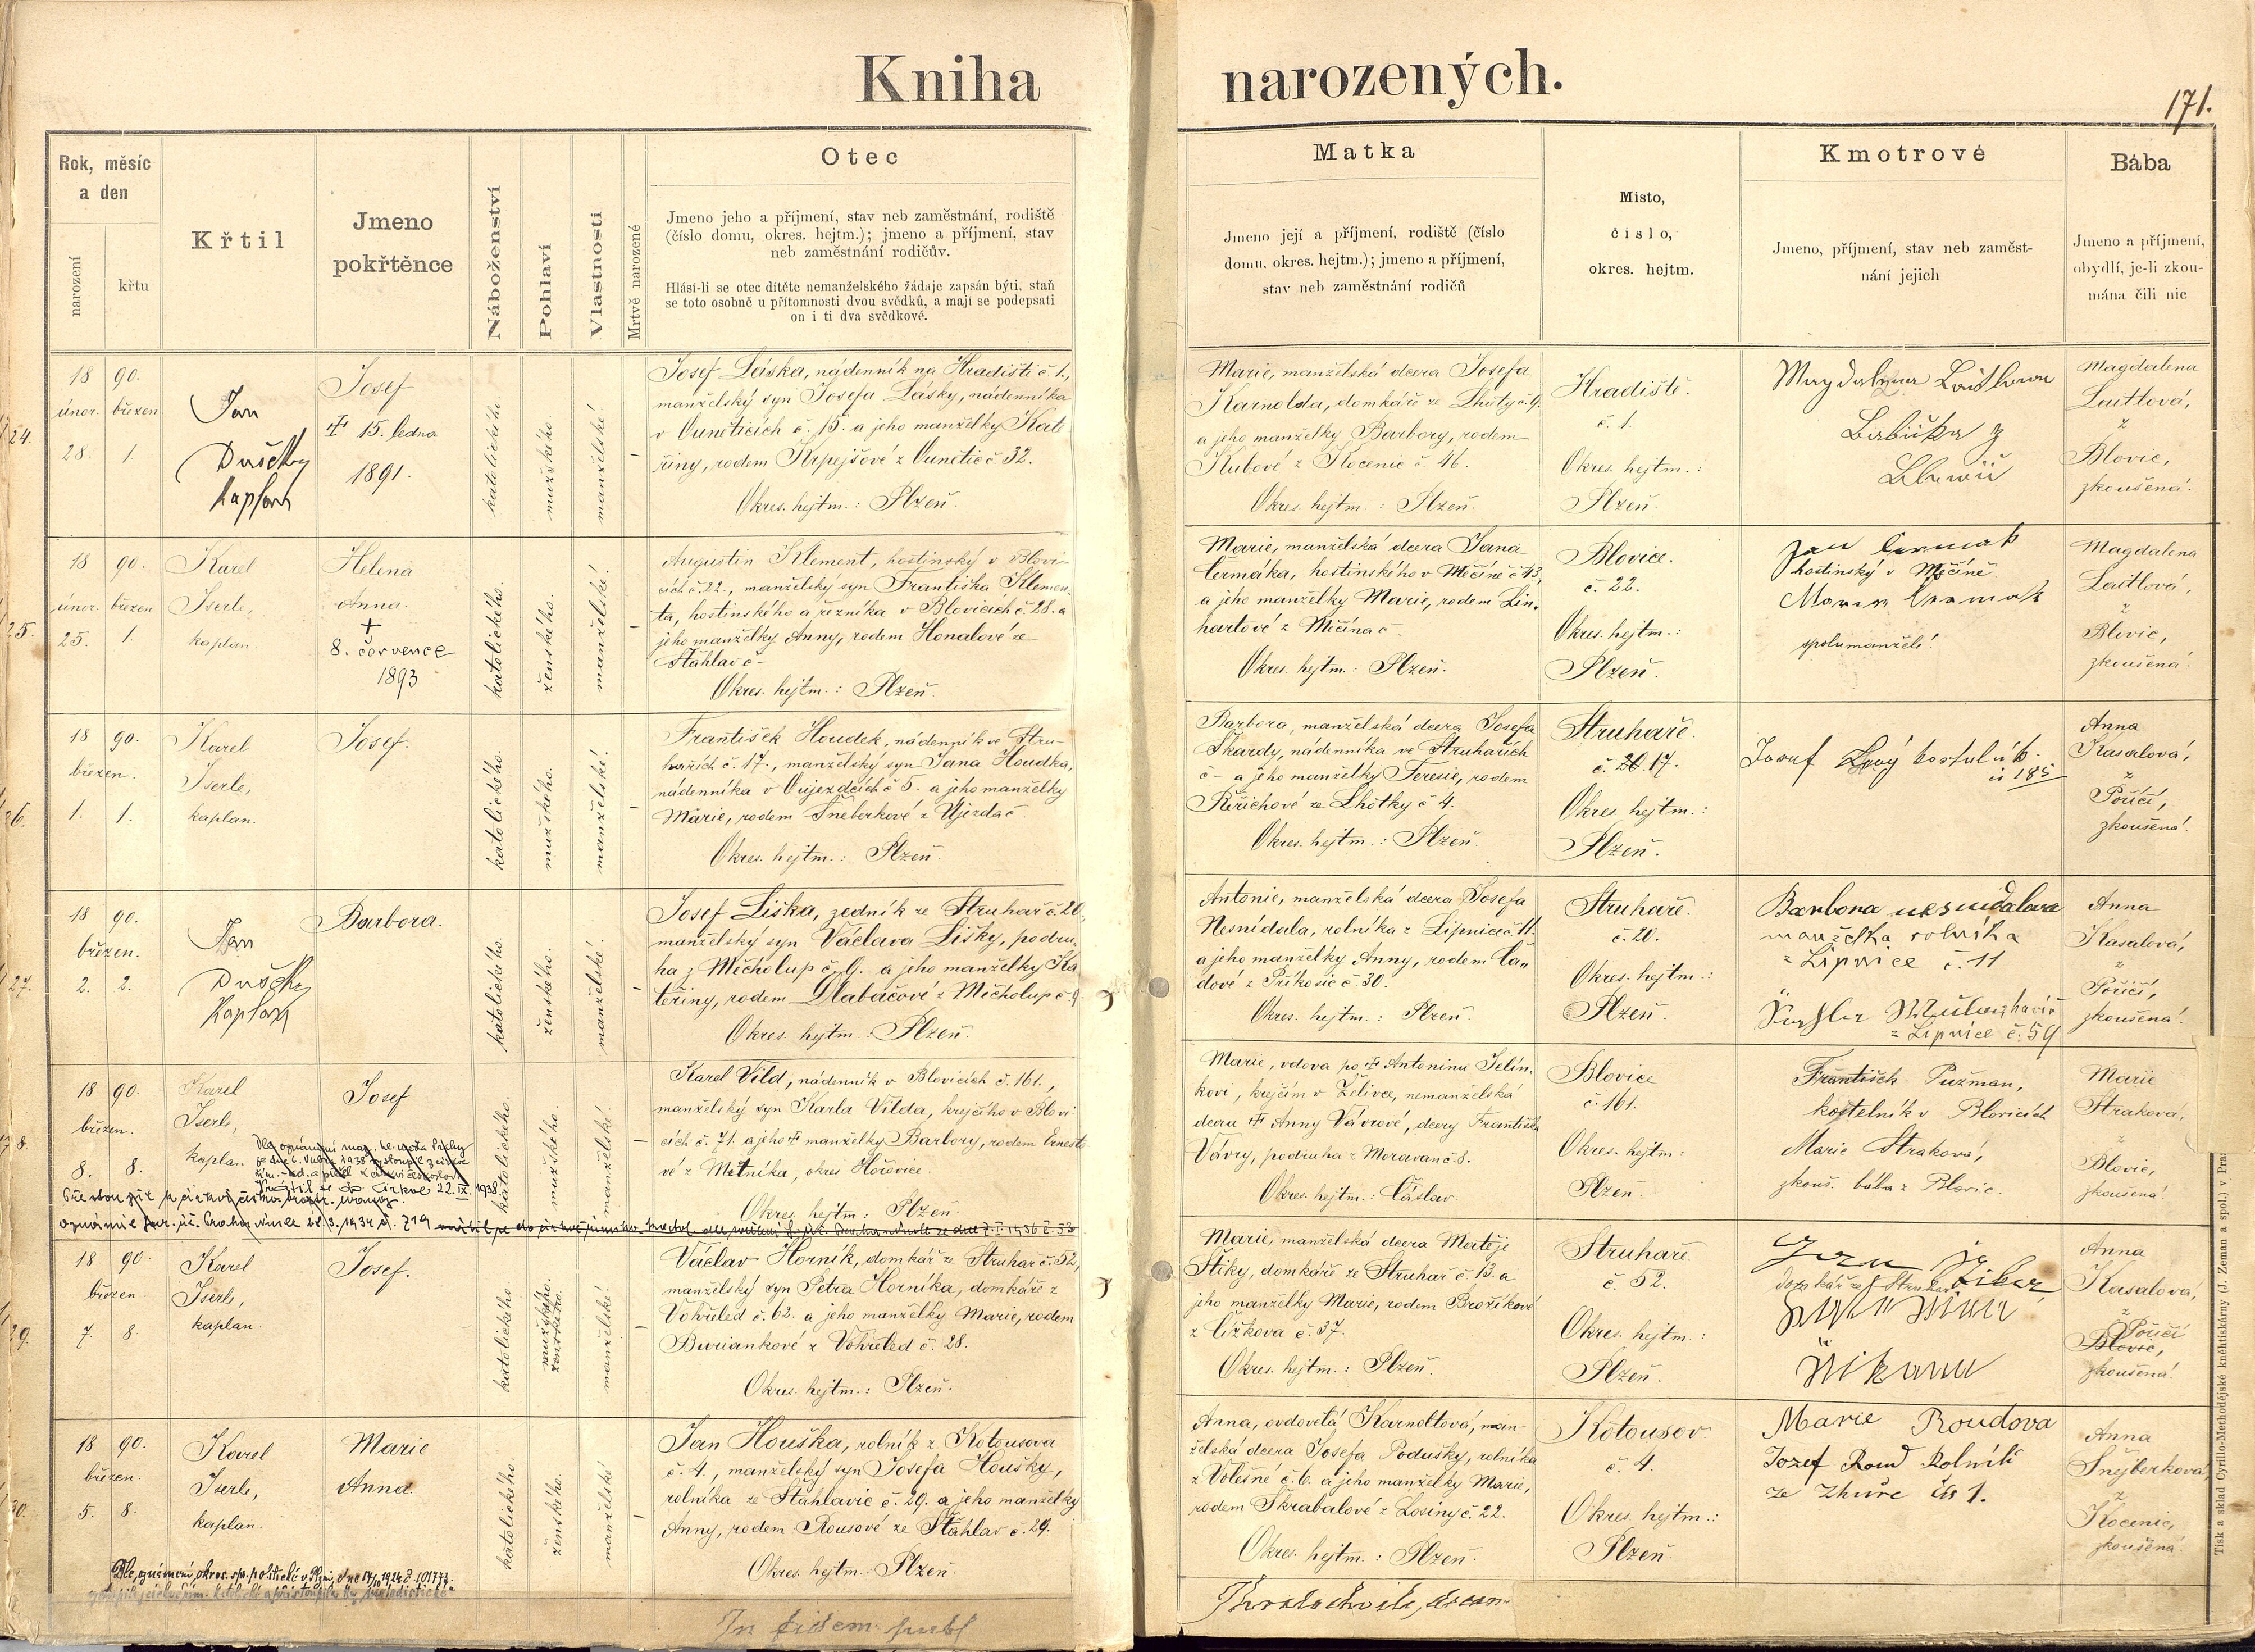 Kniha narozených.
171.
Rok, měsíc
a den
narození
křtu
Křtil
Jmeno
pokřtěnce
Náboženství
Pohlaví
Vlastnosti
Mrtvě narozené
Otec
Jmeno jeho a příjmení, stav neb zaměstnání, rodiště
(číslo domu, okres. hejtm.); jmeno a příjmení, stav
neb zaměstnání rodičův.
Hlásí-li se otec dítěte nemanželského žádaje zapsán býti, staň
se toto osobně u přítomnosti dvou svědků, a mají se podepsati
on i ti dva svědkové.
Matka
Jmeno její a příjmení, rodiště (číslo
domu, okres. hejtm.); jmeno a příjmení,
stav neb zaměstnání rodičů
Misto,
číslo,
okres. hejtm.
Kmotrové
Jmeno, příjmení, stav neb zaměst-
nání jejich
Bába
Jmeno a příjmení,
obydlí, je-li zkou-
mána čili nic
24.
18 90.
únor. březen
28. 1.
Jan
Duschky
kaplan
Josef
15. ledna
1891.
katolického.
mužského.
manželské.
Josef Láska, nádenník na Hradišti č 1.,
manželský syn Josefa Lásky, nádenníka
v Vuněticích č. 15. a jeho manželky Kate
řiny, rodem Krpejšové z Vunětic č. 32.
Okres. hejtm.: Plzeň.
Marie, manželská dcera Josefa
Karnolda, domkáře ze Lhůty č. 9.
a jeho manželky Barbory, rodem
Kubové z Kocenic č. 46.
Okres. hejtm.: Plzeň.
Hradiště.
č. 1.
Okres. hejtm.:
Plzeň
Magdalena
Babička z
Magdalena
Laitlová,
z
Blovic,
zkoušená.
25.
18 90.
únor. březen
25. 1.
Karel
Iserle,
kaplan.
Helena
Anna.
+
8. července
1893
katolického.
ženského.
manželské.
Augustin Klement, hostinský v Blovi-
cích č. 22., manželský syn Františka Klemen-
ta, hostinského a řezníka v Blovicích č. 28. a
jeho manželky Anny, rodem Honalové ze
Šťáhlav č -
Okres. hejtm.: Plzeň.
Marie, manželská dcera Jana
Čermáka, hostinského v Měčíně č 43,
a jeho manželky Marie, rodem Lin-
hartové z Měčína č -
Okres. hejtm.: Plzeň.
Blovice.
č. 22.
Okres. hejtm.:
Plzeň.
Jan Čermak
hostinský v Měčíně.
Marie Čermak
spolumanželé.
Magdalena
Laitlová,
z
Blovic,
zkoušená.
26.
18 90.
březen.
1. 1.
Karel
Iserle,
kaplan.
Josef.
katolického.
mužského.
manželské.
František Houdek, nádenník ve Stru-
hařích č. 17., manželský syn Jana Houdka,
nádenníka v Vujezdcích č 5. a jeho manželky
Marie, rodem Šneberkové z Újezda č -
Okres. hejtm.: Plzeň.
Barbora, manželská dcera Josefa
Škardy, nádenníka ve Struhařích
č - a jeho manželky Teresie, rodem
Řeřichové ze Lhotky č 4.
Okres. hejtm.: Plzeň.
Struhaře.
č. 17.
Okres. hejtm.:
Plzeň.
Josef
Anna
Kasalová,
z
Poříčí,
zkoušená.
27.
18 90.
březen.
2. 2.
Jan
Duschky
Kaplan
Barbora.
katolického.
ženského.
manželské.
Josef Liška, zedník ze Struhař č. 20,
manželský syn Václava Lišky, podru-
ha z Měcholup č. 9. a jeho manželky Ka
teřiny, rodem Dlabačové z Měcholup č 9.
Okres. hejtm.: Plzeň.
Antonie, manželská dcera Josefa
Nesnídala, rolníka z Lipnice č 11.
a jeho manželky Anny, rodem Čá-
dové z Příkosic č 30.
Okres. hejtm.: Plzeň.
Struhaře.
č. 20.
Okres. hejtm.:
Plzeň.
Barbora nesnidalova
manželka rolníka
z Lipnice č. 11
z Lipnice č. 59
Anna
Kasalová,
z
Poříčí,
zkoušená.
28.
18 90.
březen.
8. 8.
Karel
Iserle,
kaplan.
Josef
katolického.
mužského.
manželské.
22. IX. 1938.
Karel Vild, nádenník v Blovicích č. 161.,
manželský syn Karla Vilda, krejčího v Blovi
cích č. 71. a jeho manželky Barbory, rodem Ernesto
vé z Mětníka, okres Hořovice.
Okres. hejtm.: Plzeň.
Marie, vdova po Antoninu Jelín-
kovi, krejčím v Želivci, nemanželská
dcera Anny Vávrové, dcery Františka
Vávry, podruha z Moravan č 8.
Okres. hejtm.: Čáslav.
Blovice
č. 161.
Okres. hejtm.:
Plzeň.
František Pužman,
kostelník v Blovicích
Marie Straková,
zkouš. bába z Blovic.
Marie
Straková,
z
Blovic,
zkoušená.
29.
18 90.
březen.
7. 8.
Karel
Iserle,
kaplan.
Josef.
katolického.
mužského.
ženského.
manželské.
Václav Horník, domkář ze Struhař č. 52,
manželský syn Petra Horníka, domkáře z
Vohřeled č. 62. a jeho manželky Marie, rodem
Buriankové z Vohřeled č. 28.
Okres. hejtm.: Plzeň.
Marie, manželská dcera Matěje
Štiky, domkáře ze Struhař č 13. a
jeho manželky Marie, rodem Brožíkové
z Čížkova č. 37.
Okres. hejtm.: Plzeň.
Struhaře
č. 52.
Okres. hejtm.:
Plzeň.
Anna
Kasalová,
z
Poříčí
Blovic,
zkoušená.
30.
18 90.
březen.
5. 8.
Karel
Iserle,
kaplan.
Marie
Anna.
katolického.
ženského.
manželské
Jan Houška, rolník z Kotousova
č. 4., manželský syn Josefa Houšky,
rolníka ze Šťáhlavic č. 29. a jeho manželky
Anny, rodem Rousové ze Šťáhlav č. 29.
Okres. hejtm.: Plzeň.
Anna, ovdovělá Karnoltová, man-
želská dcera Josefa Podušky, rolníka
z Volešné č. 6. a jeho manželky Marie,
rodem Škrabalové z Losiny č. 22.
Okres. hejtm.: Plzeň.
Kotousov.
č. 4.
Okres. hejtm.:
Plzeň.
Marie Roudova
Jozef Roud Rolník
ze Zhůře čís 1.
Anna
Šnejberková,
z
Kocenic,
zkoušená.
In fidem publ
Tisk a sklad Cyrillo-Methodějské kněhtiskárny (J. Zeman a spol.) v Praze